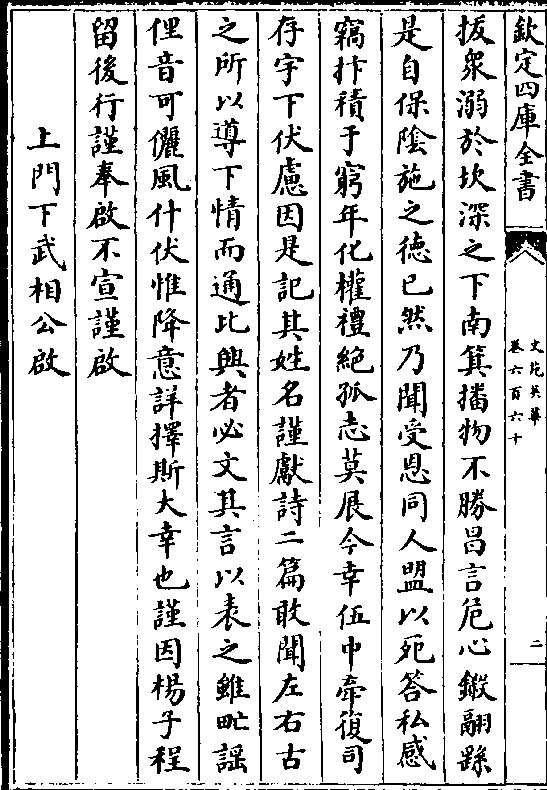 欽定四庫全書
文苑英華
卷六百六十
二
拔衆溺於坎深之下南箕播物不勝昌言危心鎩翮繇
是自保陰施之德已然乃聞受恩同人盟以死答私感
竊抃積于窮年化權禮絶孤志莫展今幸伍中牽復司
存宇下伏慮因是記其姓名謹獻詩二篇敢聞左右古
之所以導下情而通比興者必文其言以表之雖甿謡
俚音可儷風什伏惟降意詳擇斯大幸也謹因楊子程
留後行謹奉啟不宣謹啟
上門下武相公啟